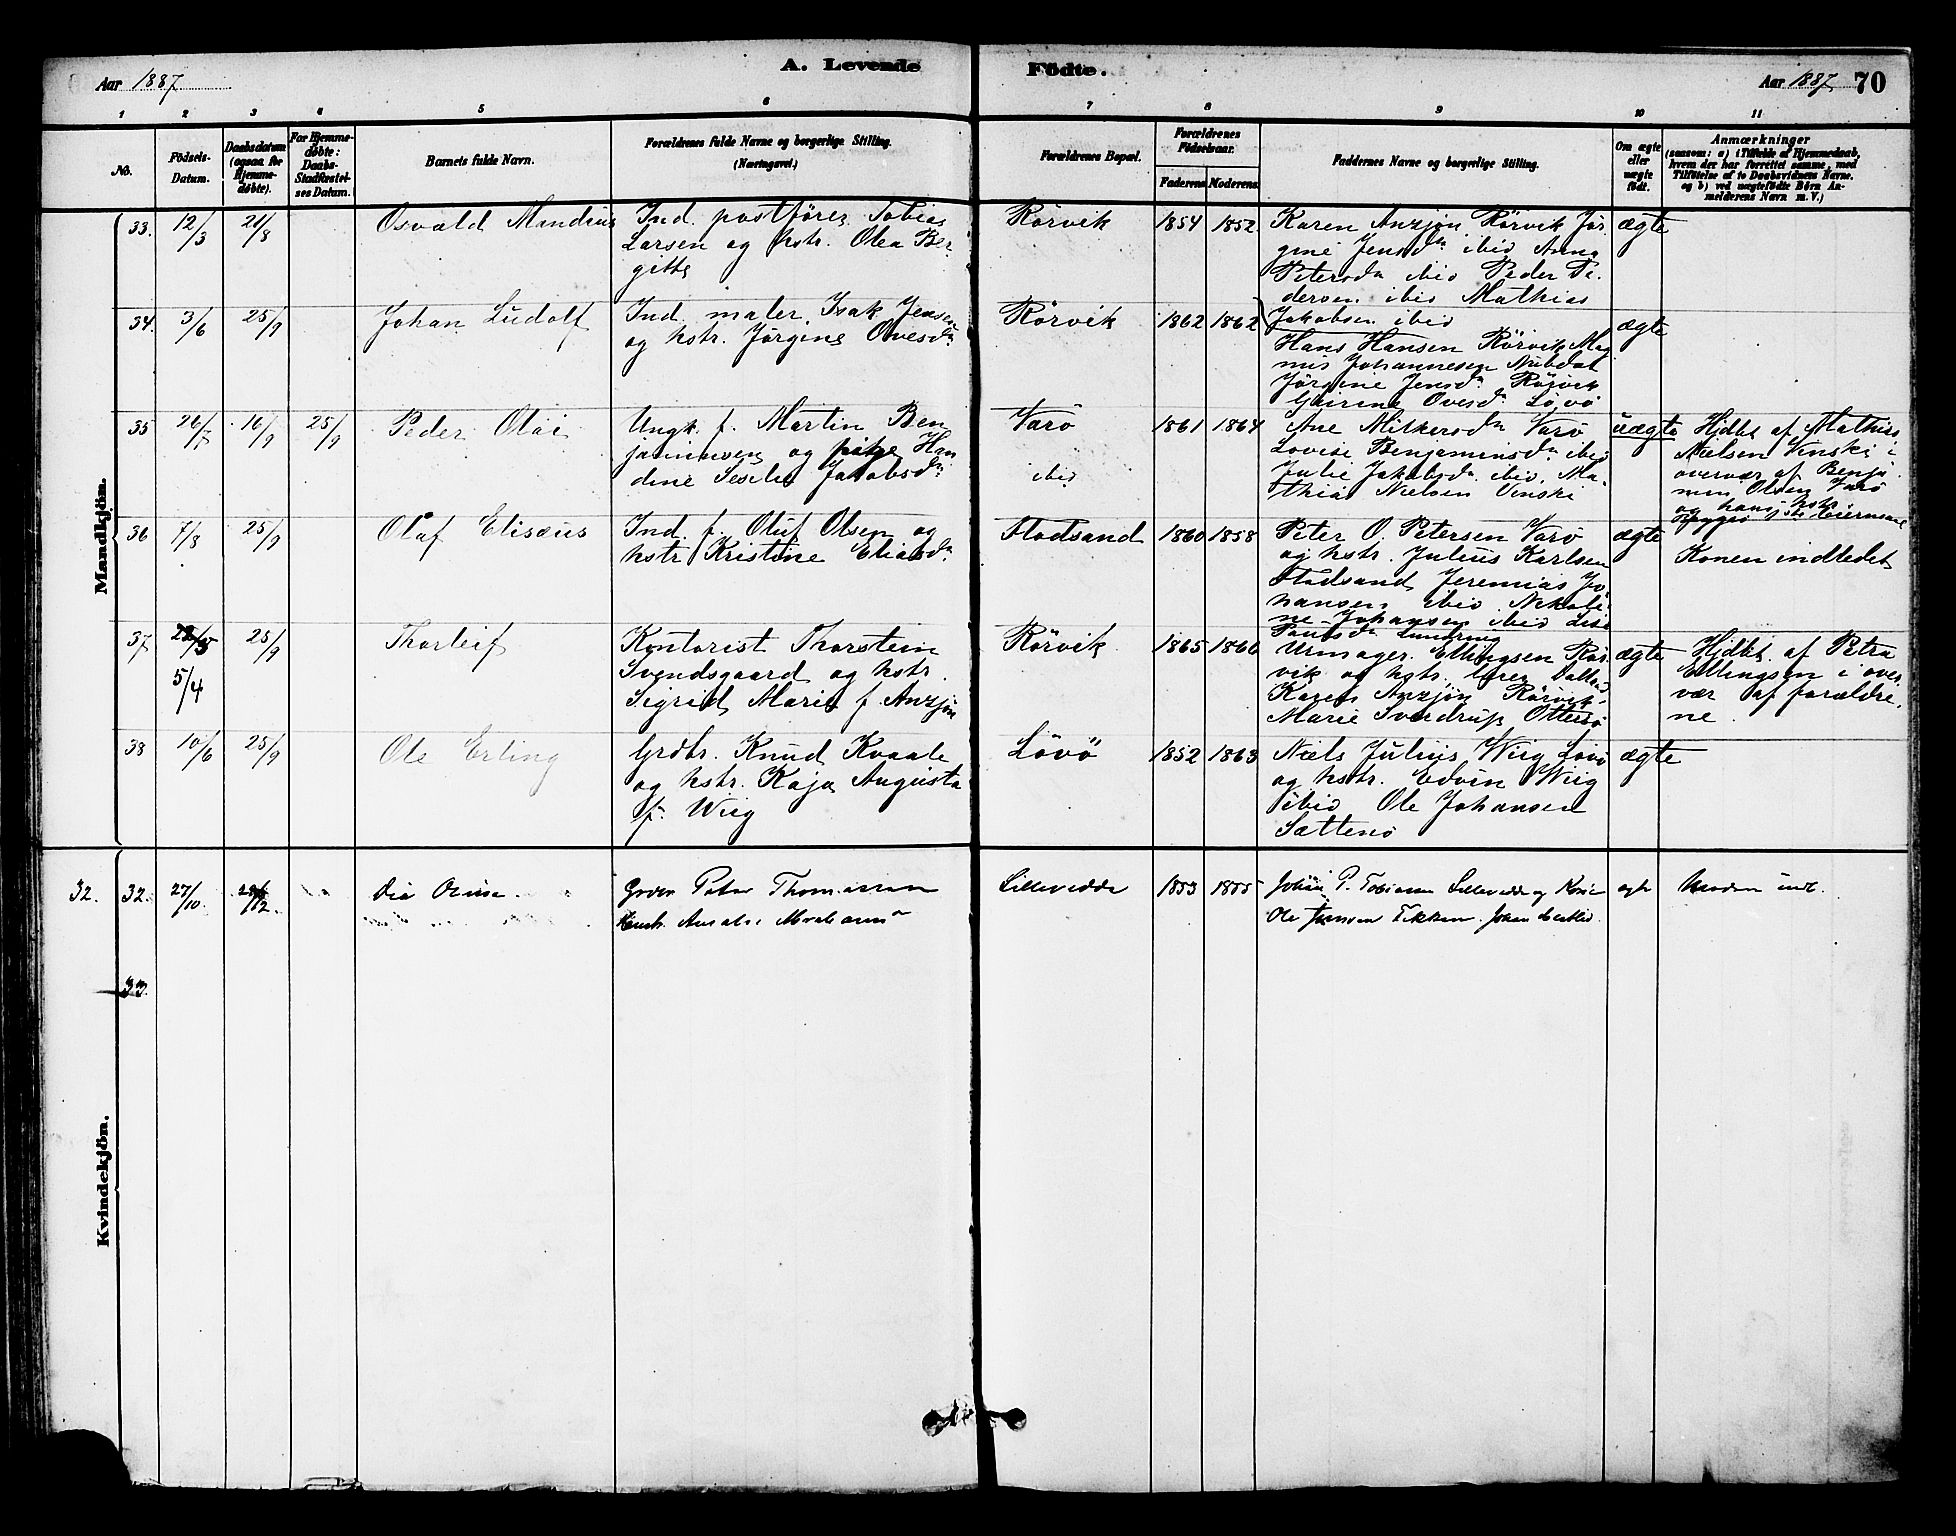 Aar 1887
A. Levende Födte.
Aar 1887 70
1 2 3 4 5 6 7 8 9 10 11
No.
Födsels-Datum.
Daabsdatum (ogsaa for Hjemmedøbte).
For Hjemmedøbte: Daabs-Stadfæstelses Datum.
Barnets fulde Navn.
Forældrenes fulde Navne og borgerlige Stilling.
(Næringsvei.)
Forældrenes Bopæl.
Forældrenes Fødselsaar.
Faderens Moderens
Faddernes Navne og borgerlige Stilling.
Om ægte eller uægte født.
Anmærkninger
(saasom: a) i Tilfælde af Hjemmedaab,
hvem der har forrettet samme, med
Tilføielse af to Daabsvidners Navne.
og b) ved uægtefødte Börn An-
melderens Navn m. V.)
Mandkjön.
33. 12/3 21/8 Osvald Mandius
Ind. postfører Tobias
Larsen og hstr. Olea Ber
gitte
Rörvik 1854 1852
Karen Anzjön Rörvik Jör
gine Jensdn ibid Anna
Petersdn ibid Peder Pe
dersen ibid Mathias
Jakobsen ibid
ægte
34. 3/6 25/9 Johan Ludolf
Ind. maler Isak Jensen
og hstr. Jørgine Ovesdn
Rörvik 1862 1862
Hans Hansen Rörvik Mag
nus Johannesen
Jørgine Jensdn Rörvik
Ovesdn Lövö
ægte
35 26/7 16/9 25/9 Peder Olai
Ungk. f. Martin Ben
jaminsen og pike Han
dine Jakobsdn
Varö ibid 1861 1864
Ane Varö
Lovise Benjaminsdn ibid
Julie Jakobsdn ibid. Ma
thias Nielsen Vinski
uægte
Hjdbt af Mathias
Nielsen Vinski i
overvær af Benja
min Olsen Varö
og hans hstr.
36 7/8 25/9 Olaf Elisæus
Ind. f. Oluf Olsen og
hstr Kristine Eliasdn
Flodsand 1860 1858
Peter O. Petersen Varö
og hstr. Julius Karlsen
Flodsand Jeremias Jo
hansen ibid. Nikoli
ne Johansen ibid Lise
Paulsdn
ægte
Konen indledet
37 5/4 25/9 Thorleif
Kontorist Thorstein
Svendsgaard og hstr.
Sigrid Marie f. Anzjön
Rörvik 1865 1866
Urmager Ellingsen Rör
vik og hstr.
Karen Anzjön Rörvik
Marie Svendrup Ottersö
ægte
Hjdbt. af Petra
Ellingsen i over
vær af forældre
ne
38 10/6 25/9 Ole Erling
Grdbr. Knud Kvaale
og hstr. Kaja Augusta
f. Wiig
Lövö 1852 1863
Niels Julius Wiig Lövö
og hstr. Edvin Wiig
ibid Ole Johansen
Sættenö
ægte
Kvindekjön.
32. 32. 27/10
Peter Thomassen
Lillevedde 1853 1855
P. Tobiassen Lillevedde og Kone
Ole
ægte
Moderen indl.
33.